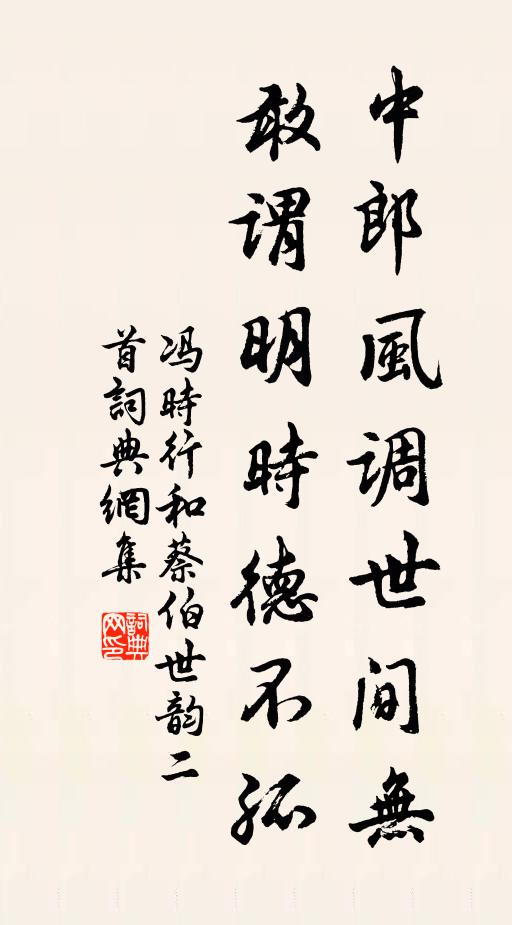 中郎風调世间無
敢谓明時德不孤
冯時行和蔡伯世韵二
首詞典網集
詞典
网印